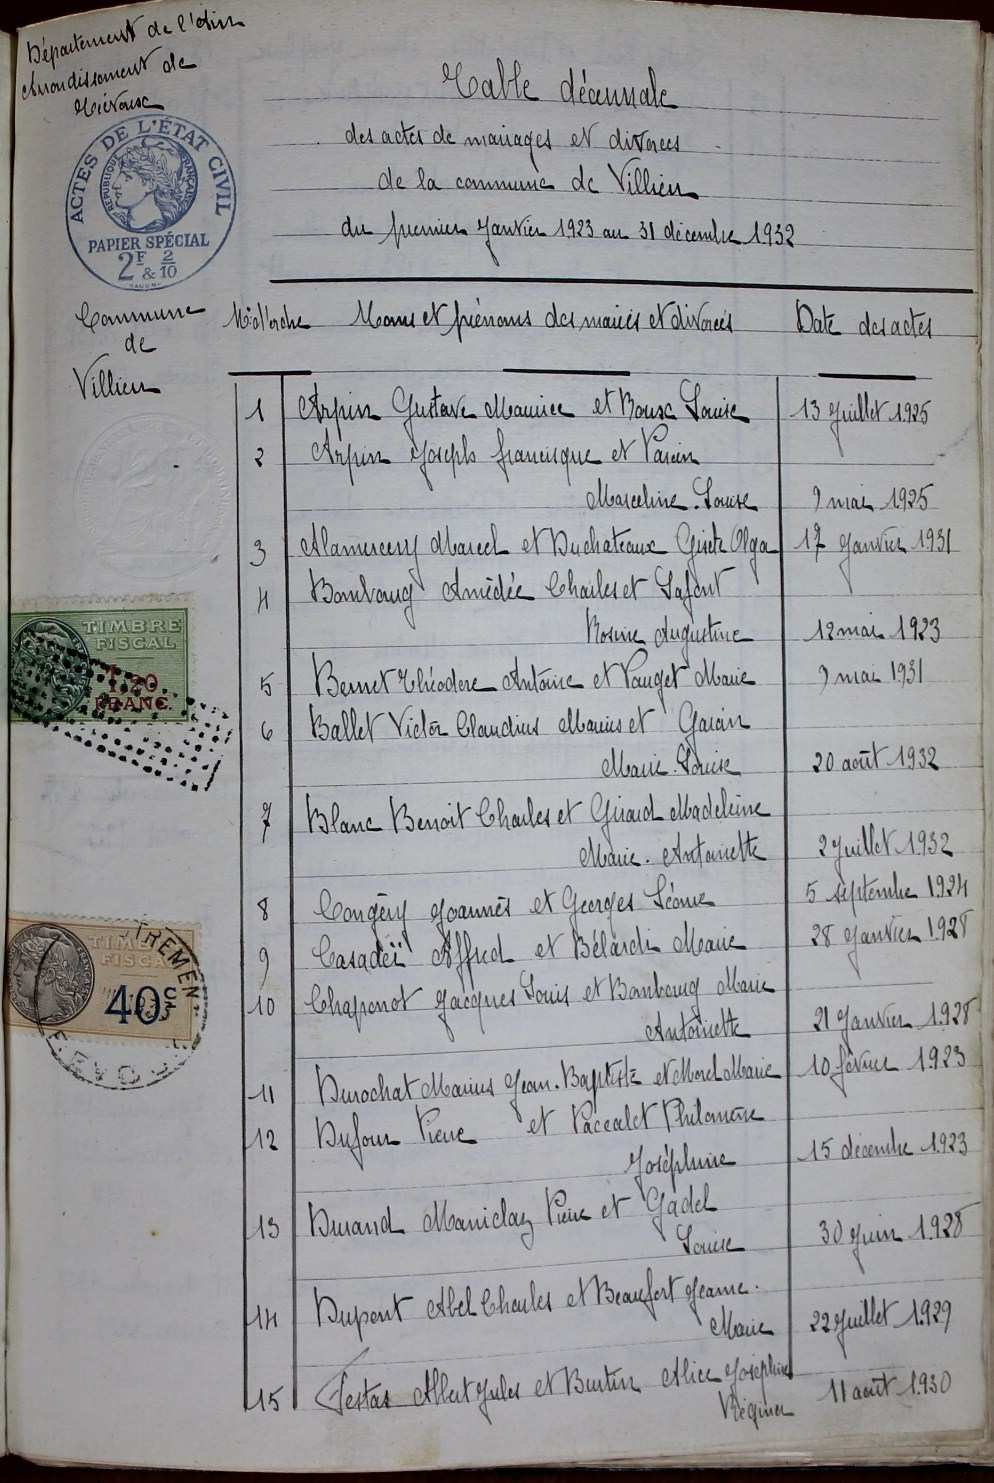 Département de l'Ain
Arrondissement de
Trévoux
ACTES DE L'ÉTAT CIVIL
RÉPUBLIQUE FRANÇAISE
PAPIER SPÉCIAL
2F 2/10
& 
Table décennale
des actes de mariages et divorces
de la commune de Villieu
du premier Janvier 1923 au 31 décembre 1932
Commune
de
Villieu
N° d'ordre Noms et prénoms des mariés et divorcés Date des actes
1 Arpin Gustave Maurice et Roux Louise 13 Juillet 1925
2 Arpin Joseph francisque et
Marceline. Louise 9 mai 1925
3 Alamercery Marcel et Duchateaux Gisèle Olga 17 Janvier 1931
4 Bonbourg Amédée Charles et Lafont
Rosine Augustine 12 mai 1923
TIMBRE
FISCAL
1.20
FRANC
5 Bernet Théodore Antoine et Pouget Marie 9 mai 1931
6 Ballet Victor Claudius Marius et Garin
Marie. Louise 20 août 1932
7 Blanc Benoit Charles et Girard Madeleine
Marie. Antoinette 2 Juillet 1932
8 Congéry Joannès et Georges Léonie 5 septembre 1924
9 Casadeï Alfred et Bélardi Marie 28 Janvier 1928
TIMBRE
FISCAL
40c
10 Chaponot Jacques Louis et Bonbourg Marie
Antoinette 21 Janvier 1928
11 Durochat Marius Jean. Baptiste et Morel Marie 10 février 1923
12 Dufour Pierre et Paccalet Philomène
Joséphine 15 décembre 1923
13 Durand Maniclaz Pierre et Gadel
Louise 30 Juin 1928
14 Dupont Abel Charles et Beaufort Jeanne.
Marie 22 Juillet 1929
15 Festas Albert Jules et Burtin Alice Joséphine
Régina 11 août 1930